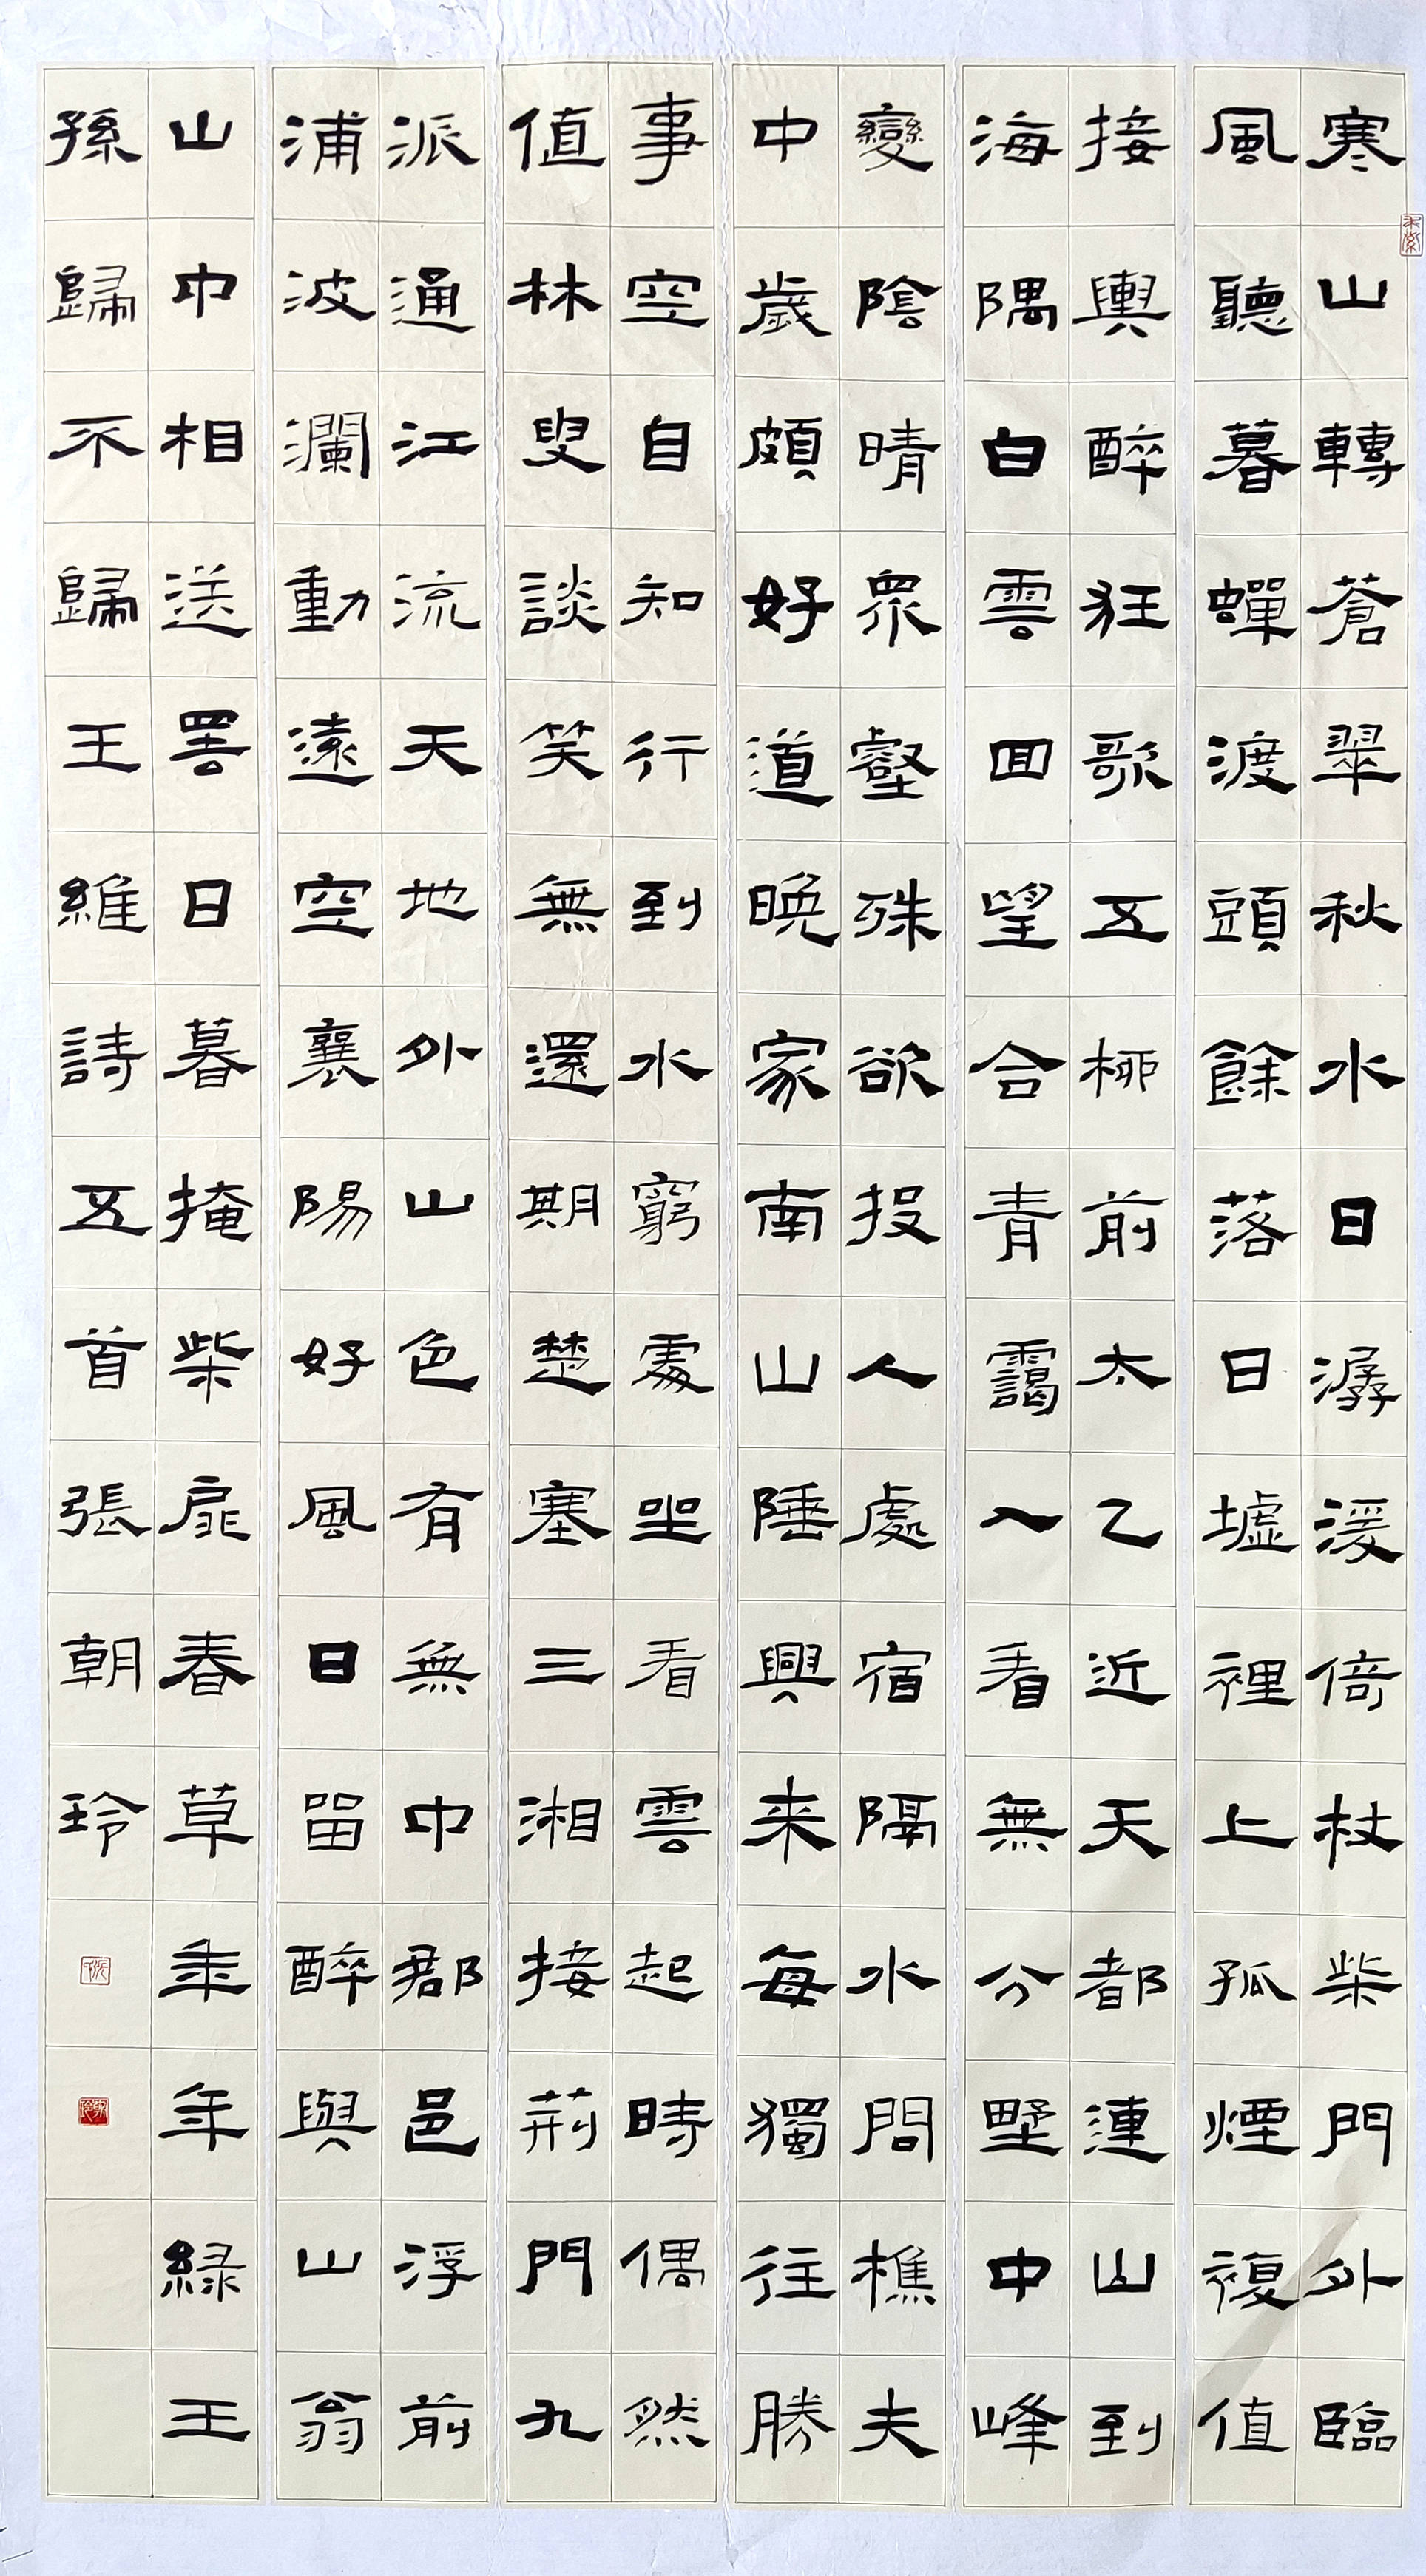 寒山轉蒼翠秋水日潺湲倚杖柴門外臨
風聽暮蟬渡頭餘落日墟裡上孤煙複值
接輿醉狂歌五柳前太乙近天都連山到
海隅白雲回望合青靄入看無分野中峰
變陰晴眾壑殊欲投人處宿隔水問樵夫
中歲頗好道晚家南山陲興来每獨往勝
事空自知行到水窮處坐看雲起時偶然
值林叟談笑無還期楚塞三湘接荊門九
派通江流天地外山色有無中郡邑浮前
浦波瀾動遠空襄陽好風日留醉與山翁
山中相送罷日暮掩柴扉春草年年綠王
孫歸不歸王維詩五首張朝玲